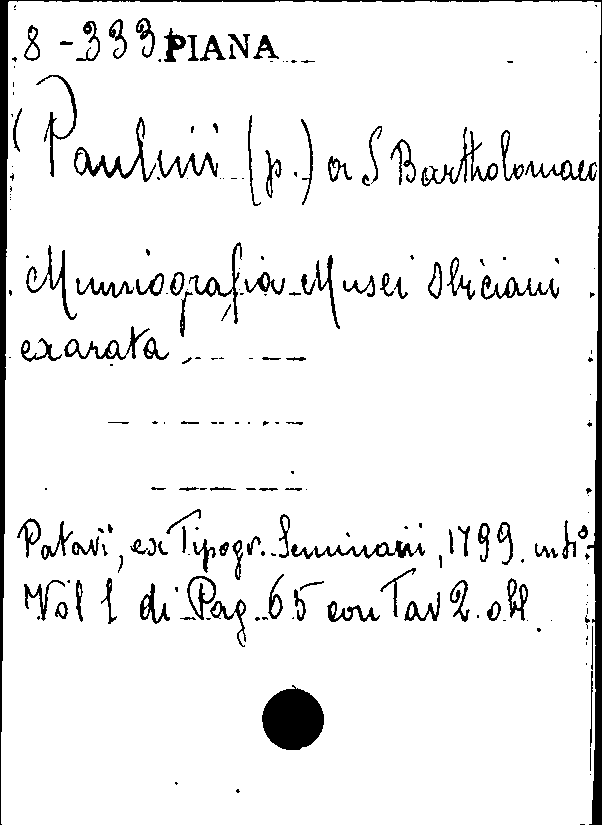 8-333 PIANA
Paulini (p.) a S Bartholomaeo
Mumiografia Musei Obiciani
exarata
Patavii, ex Tipogr. Seminarii, 1799. in
Vol 1 di Pag. 65 con Tav 2.